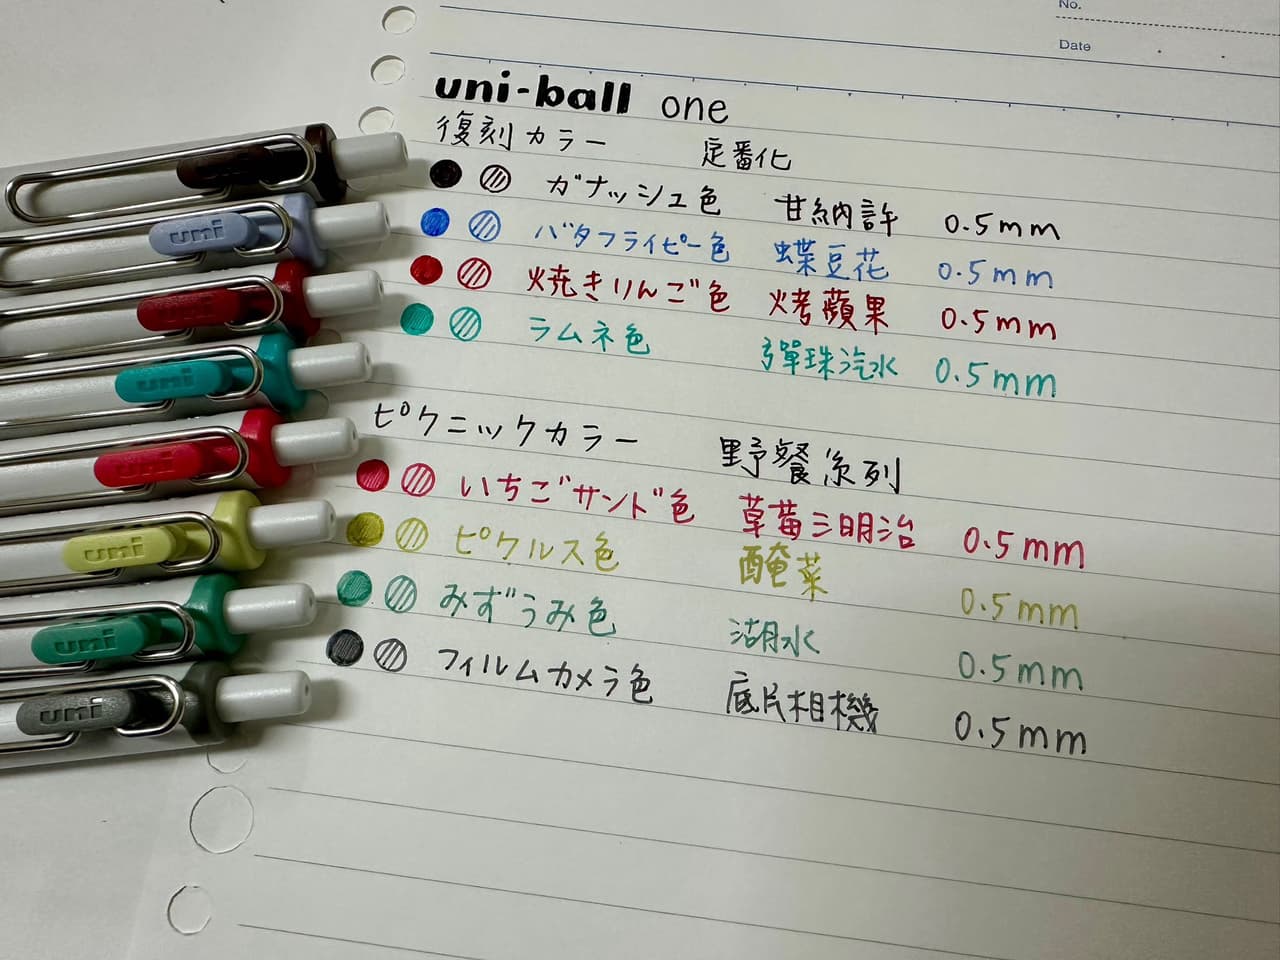 No.
Date
uni-ball one
復刻カラー 定番化
ガナッシュ色 甘納許 0.5mm
バタフライピー色 蝶豆花 0.5mm
焼きりんご色 烤蘋果 0.5mm
ラムネ色 彈珠汽水 0.5mm
ピクニックカラー 野餐系列
いちごサンド色 草莓三明治 0.5mm
ピクルス色 醃菜 0.5mm
みずうみ色 湖水 0.5mm
フィルムカメラ色 底片相機 0.5mm
uni
uni
uni
uni
uni
uni
uni
uni